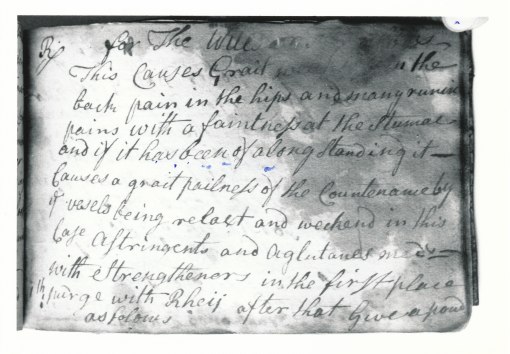 Rx for The Wites
This Causes Grait in the
back pain in the hips and many runin
pains with a faintness at the Stumac
and if it has been of a long standing it
Causes a grait pailness of the Countename by
ye vesels being relaxt and weekend in this
Case Astringents and Aglutanes need
with Strengtheners in the first place
purge with Rheij after that Give a powd
as folows